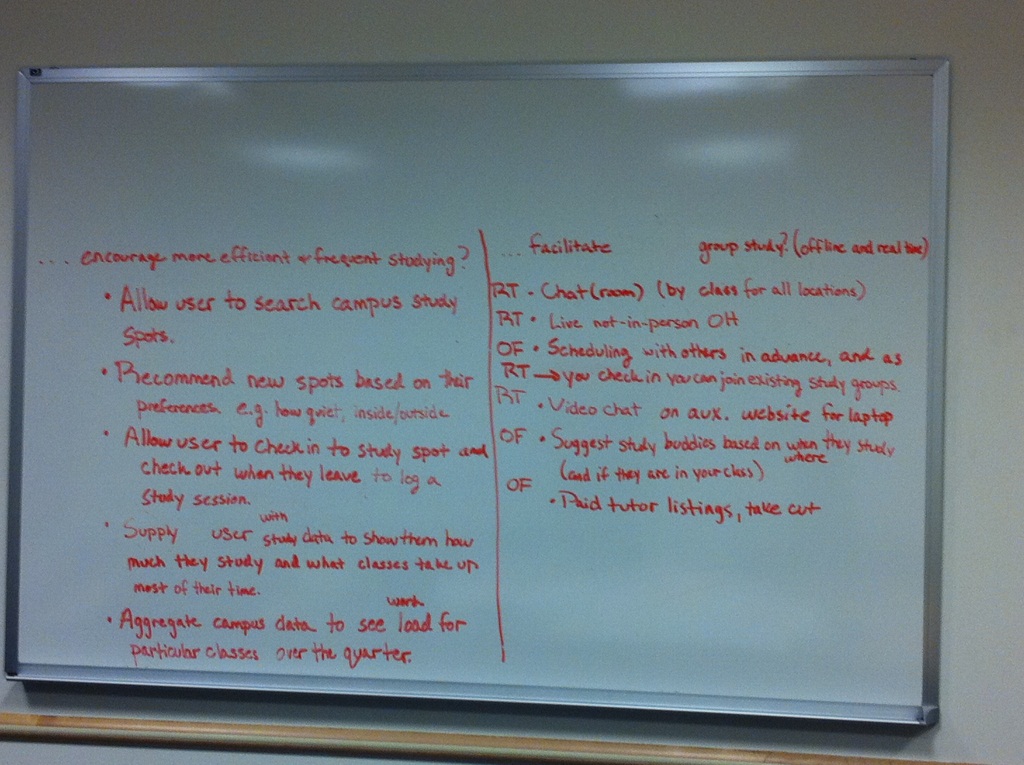 ... encourage more efficient & frequent studying?
• Allow user to search campus study
spots.
• Recommend new spots based on their
preferences. e.g. how quiet, inside/outside
• Allow user to check in to study spot and
check out when they leave to log a
study session.
with
• Supply user study data to show them how
much they study and what classes take up
most of their time.
work
• Aggregate campus data to see load for
particular classes over the quarter.
... facilitate group study? (offline and real time)
RT • Chat (room) (by class for all locations)
RT • Live not-in-person OH
OF • Scheduling with others in advance, and as
RT → you check in you can join existing study groups.
RT • Video chat on aux. website for laptop
OF • Suggest study buddies based on when they study
where
(and if they are in your class)
OF • Paid tutor listings, take cut